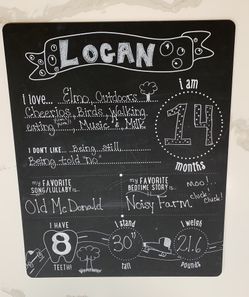 LOGAN
I love... Elmo, Outdoors
Cheerios, Birds, Walking
eating, Music & Milk
i am
14
months
I DON'T LIKE... Being still,
Being told "no"
my FAVORITE
SONG/LULLABY is...
Old McDonald
my FAVORITE
BEDTIME STORY is...
Noisy Farm
moo!
cluck!
cluck!
I HAVE
8
TEETH!
I stand
30"
tall
I weigh
21.6
POUNDS